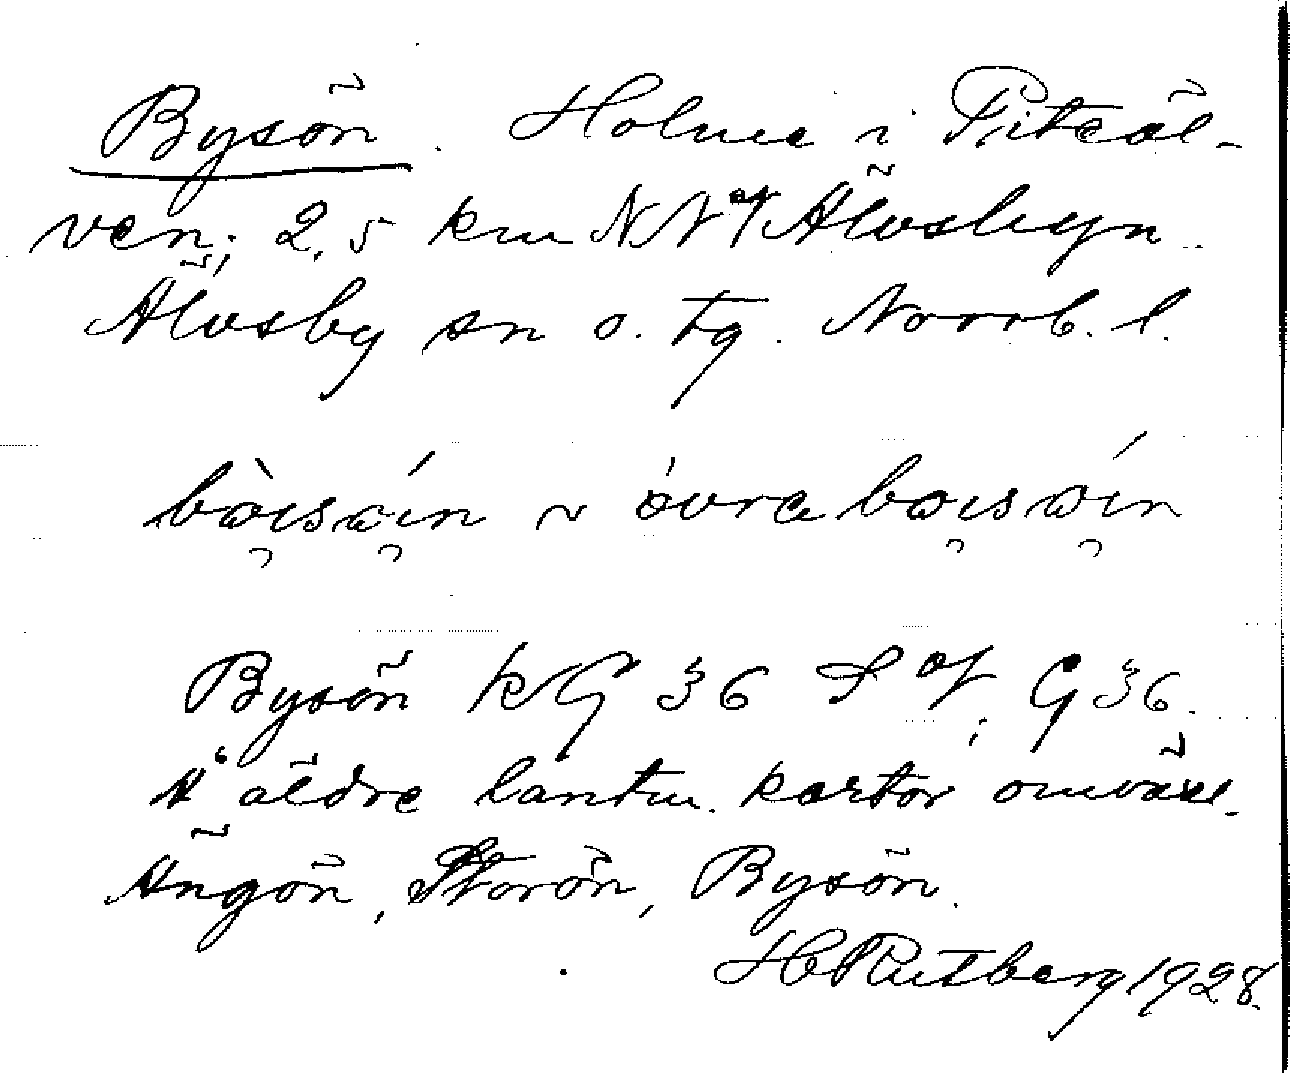 Bysön. Holme i Piteäl-
ven; 2,5 km NNV Älvsbyn.
Älvsby sn o. tg. Norrb. l.
Bysön KG 36 SV; G 36.
Å äldre lantm. kartor omväxl.
Ängön, Storön, Bysön.
H Rutberg 1928.